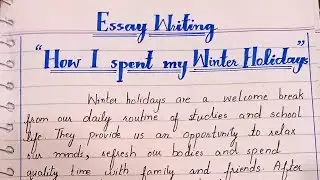 Essay Writing
"How I spent my Winter Holidays"
Winter holidays are a welcome break
from our daily routine of studies and school
life. They provide us an opportunity to relax
our minds, refresh our bodies and spend
quality time with family and friends. After